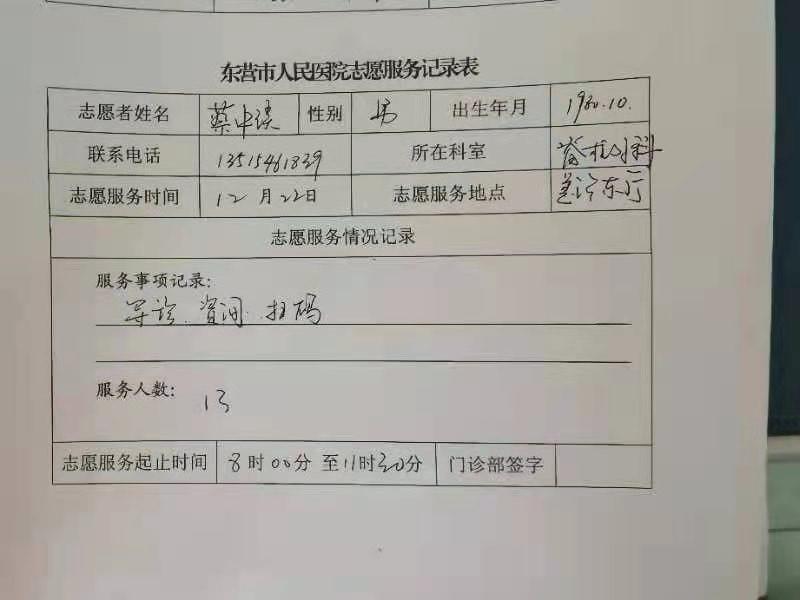 东营市人民医院志愿服务记录表
志愿者姓名 蔡中 性别 男 出生年月 1980.10.
联系电话 13515461839 所在科室 脊柱外科
志愿服务时间 12月22日 志愿服务地点 门诊东厅
志愿服务情况记录
服务事项记录:
导诊. 咨询. 扫码
服务人数: 13
志愿服务起止时间 8时00分至11时30分 门诊部签字